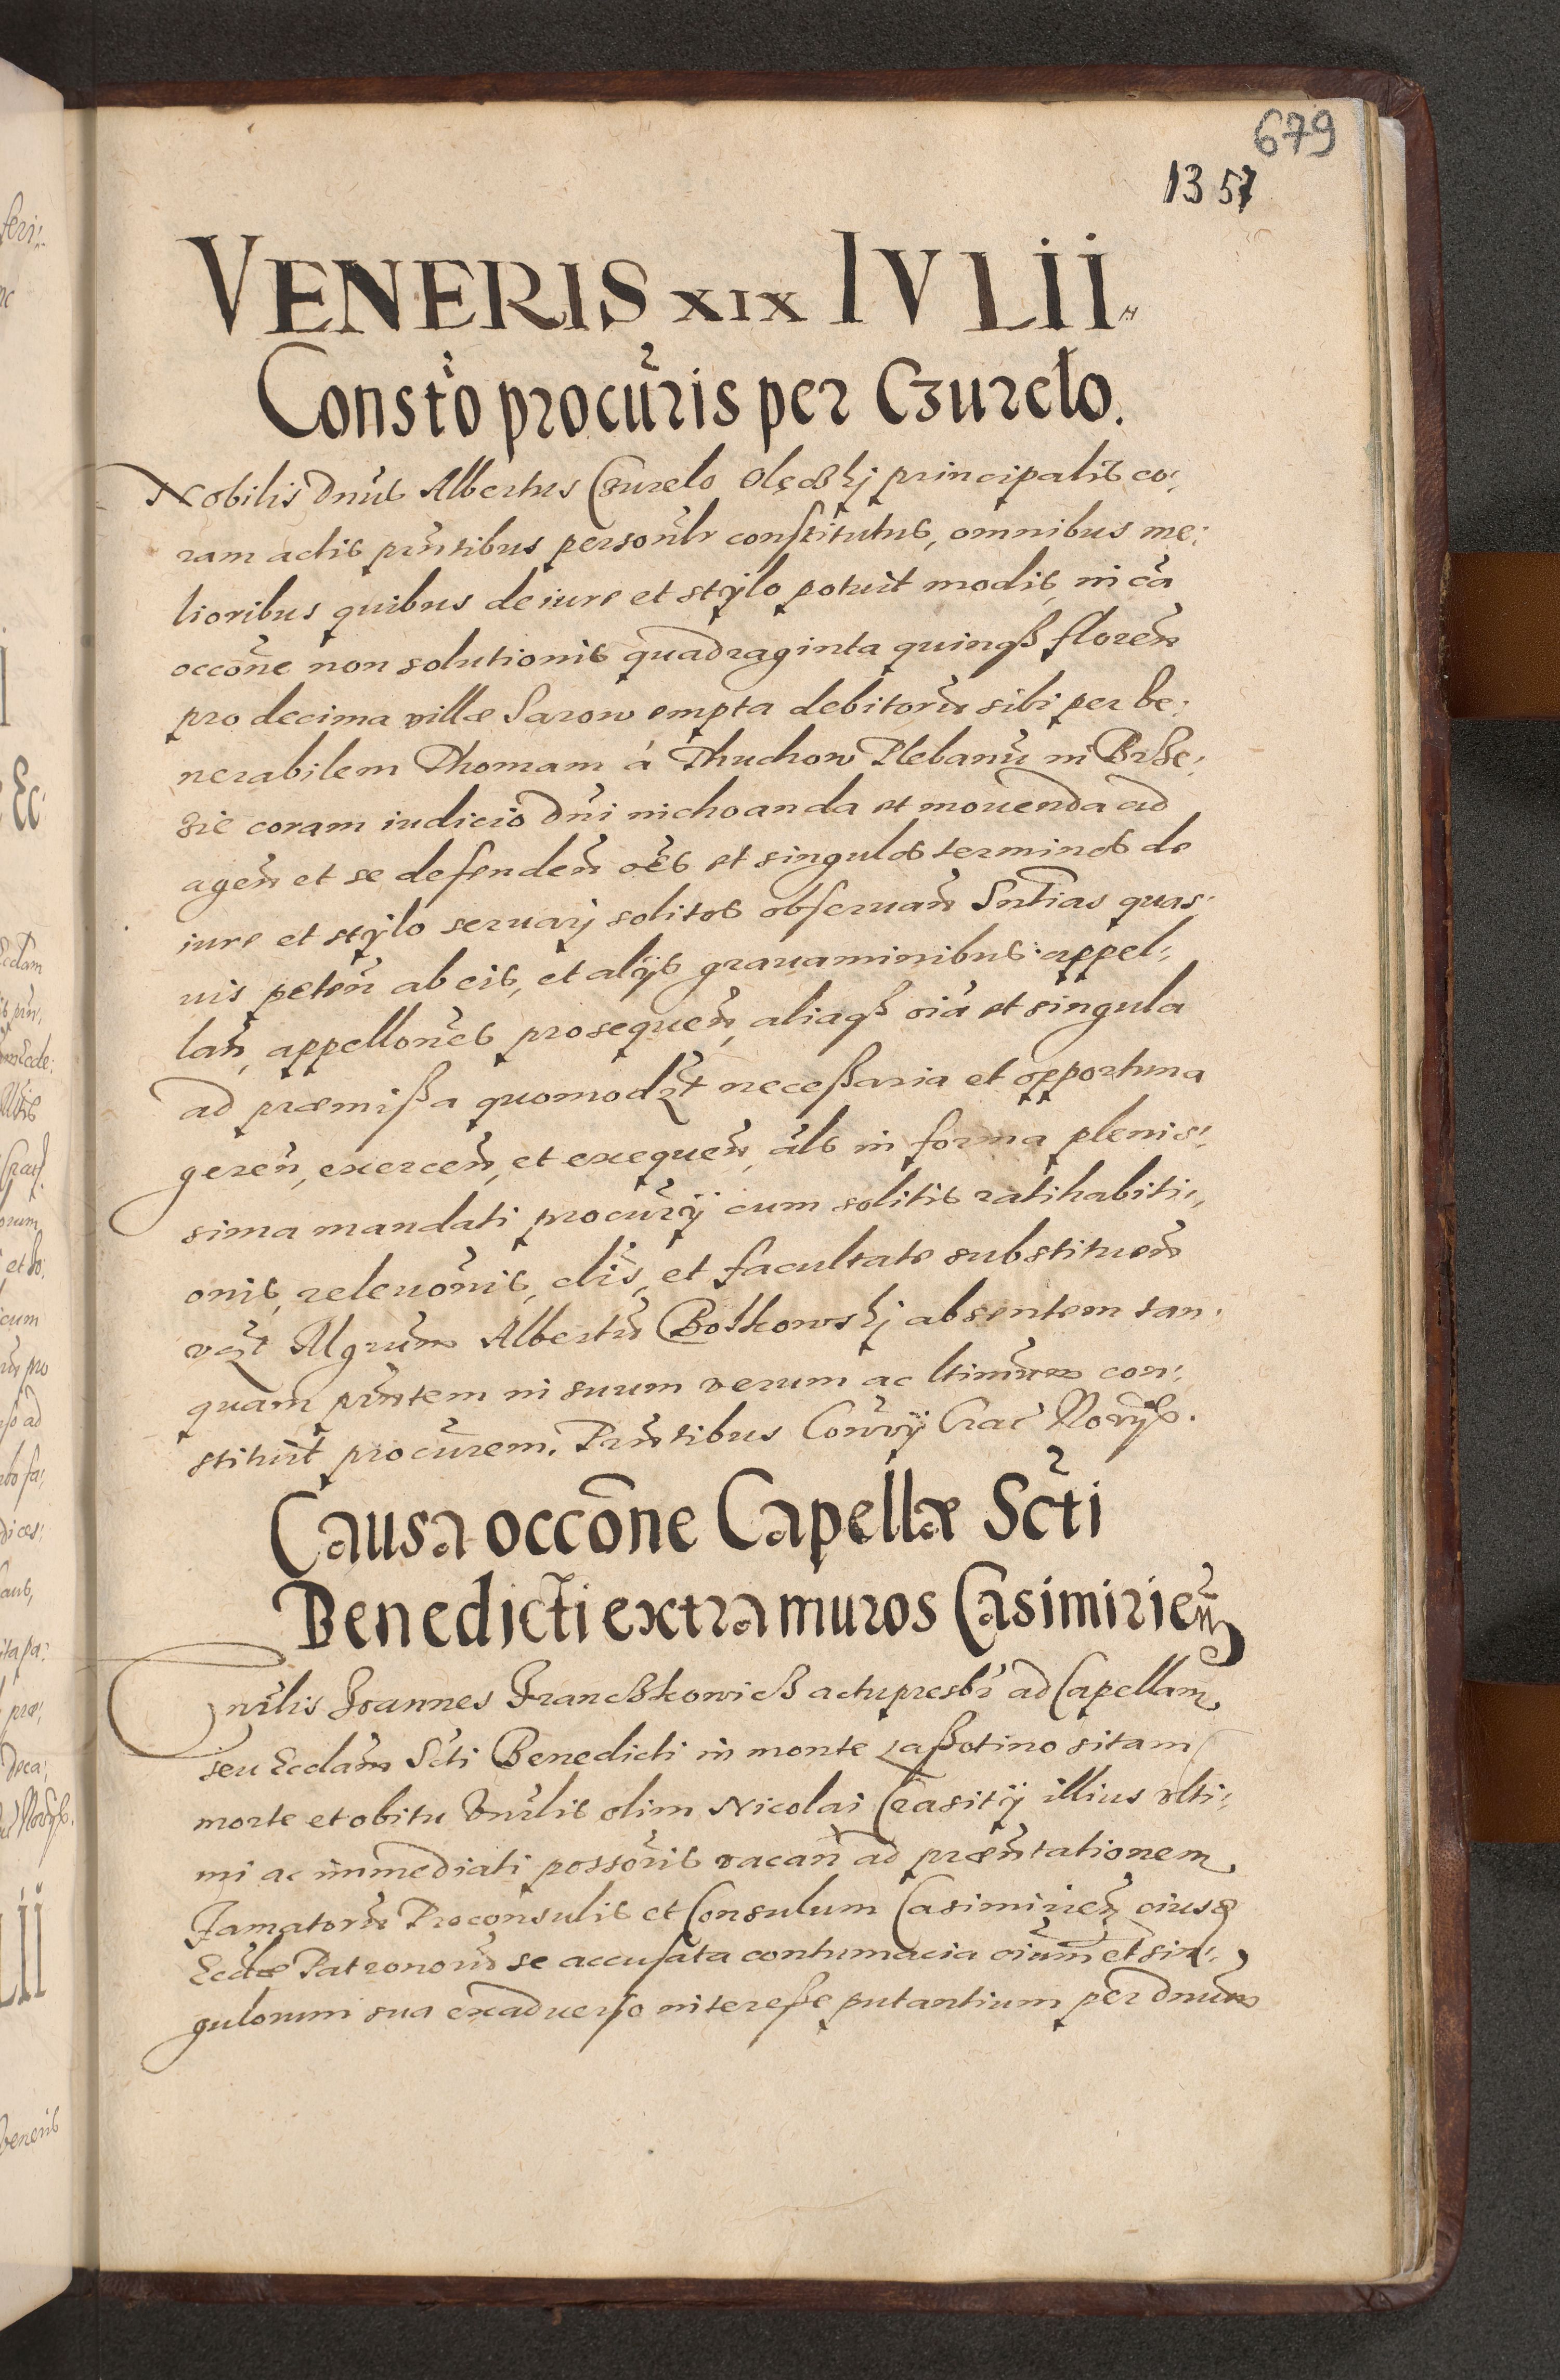 679
1357
VENERIS XIX IVLII
Consto procuris per Czurelo.
Nobilis Dnus Albertus Czurelo principalis co:
ram actis pntibus personlr constitutus, omnibus me:
lioribus quibus de iure et stylo potuit modis, in ca
occone non solutionis quadraginta quinqß floren
pro decima villæ Sarow empta debitorum sibi per Ve:
nerabilem Thomam á Thuchow Plebanu in Brze:
zie coram iudicio Dni inchoanda et mouenda ad
agen et se defenden oes et singulos terminos de
iure et stylo seruarj solitos obseruan Sntias quas:
uis peten ab eis, et alijs grauaminibus appel:
lan, appellones prosequen, aliaqß oia et singula
ad præmißa quomodlzt neceßaria et opportuna
geren, exercen, et exequen, als in forma plenis:
sima mandati procurij cum solitis ratihabiti:
onis, releuonis, clis, et facultate substituen
vzt Mgrum Albertu Botkowskj absentem tan:
quam pntem in suum verum ac ltimum con:
stituit procurem. Pntibus Conrij Crac Norijß.
Causa occone Capellæ Scti
Benedicti extra muros Casimirien
Vnrlis Joannes Franczkowicz actupresbr ad Capellam
seu Ecclam Scti Benedicti in monte Laßotino sitam
morte et obitu Vnrlis olim Nicolai illius vlti:
mi ac immediati possoris vacan ad præntationem
Famatoru Proconsulis et Consulum Casimirien eiusd
Ecclæ Patronoru se accusata contumacia oium et sin:
gulorum sua exaduerso intereße putantium per dnum